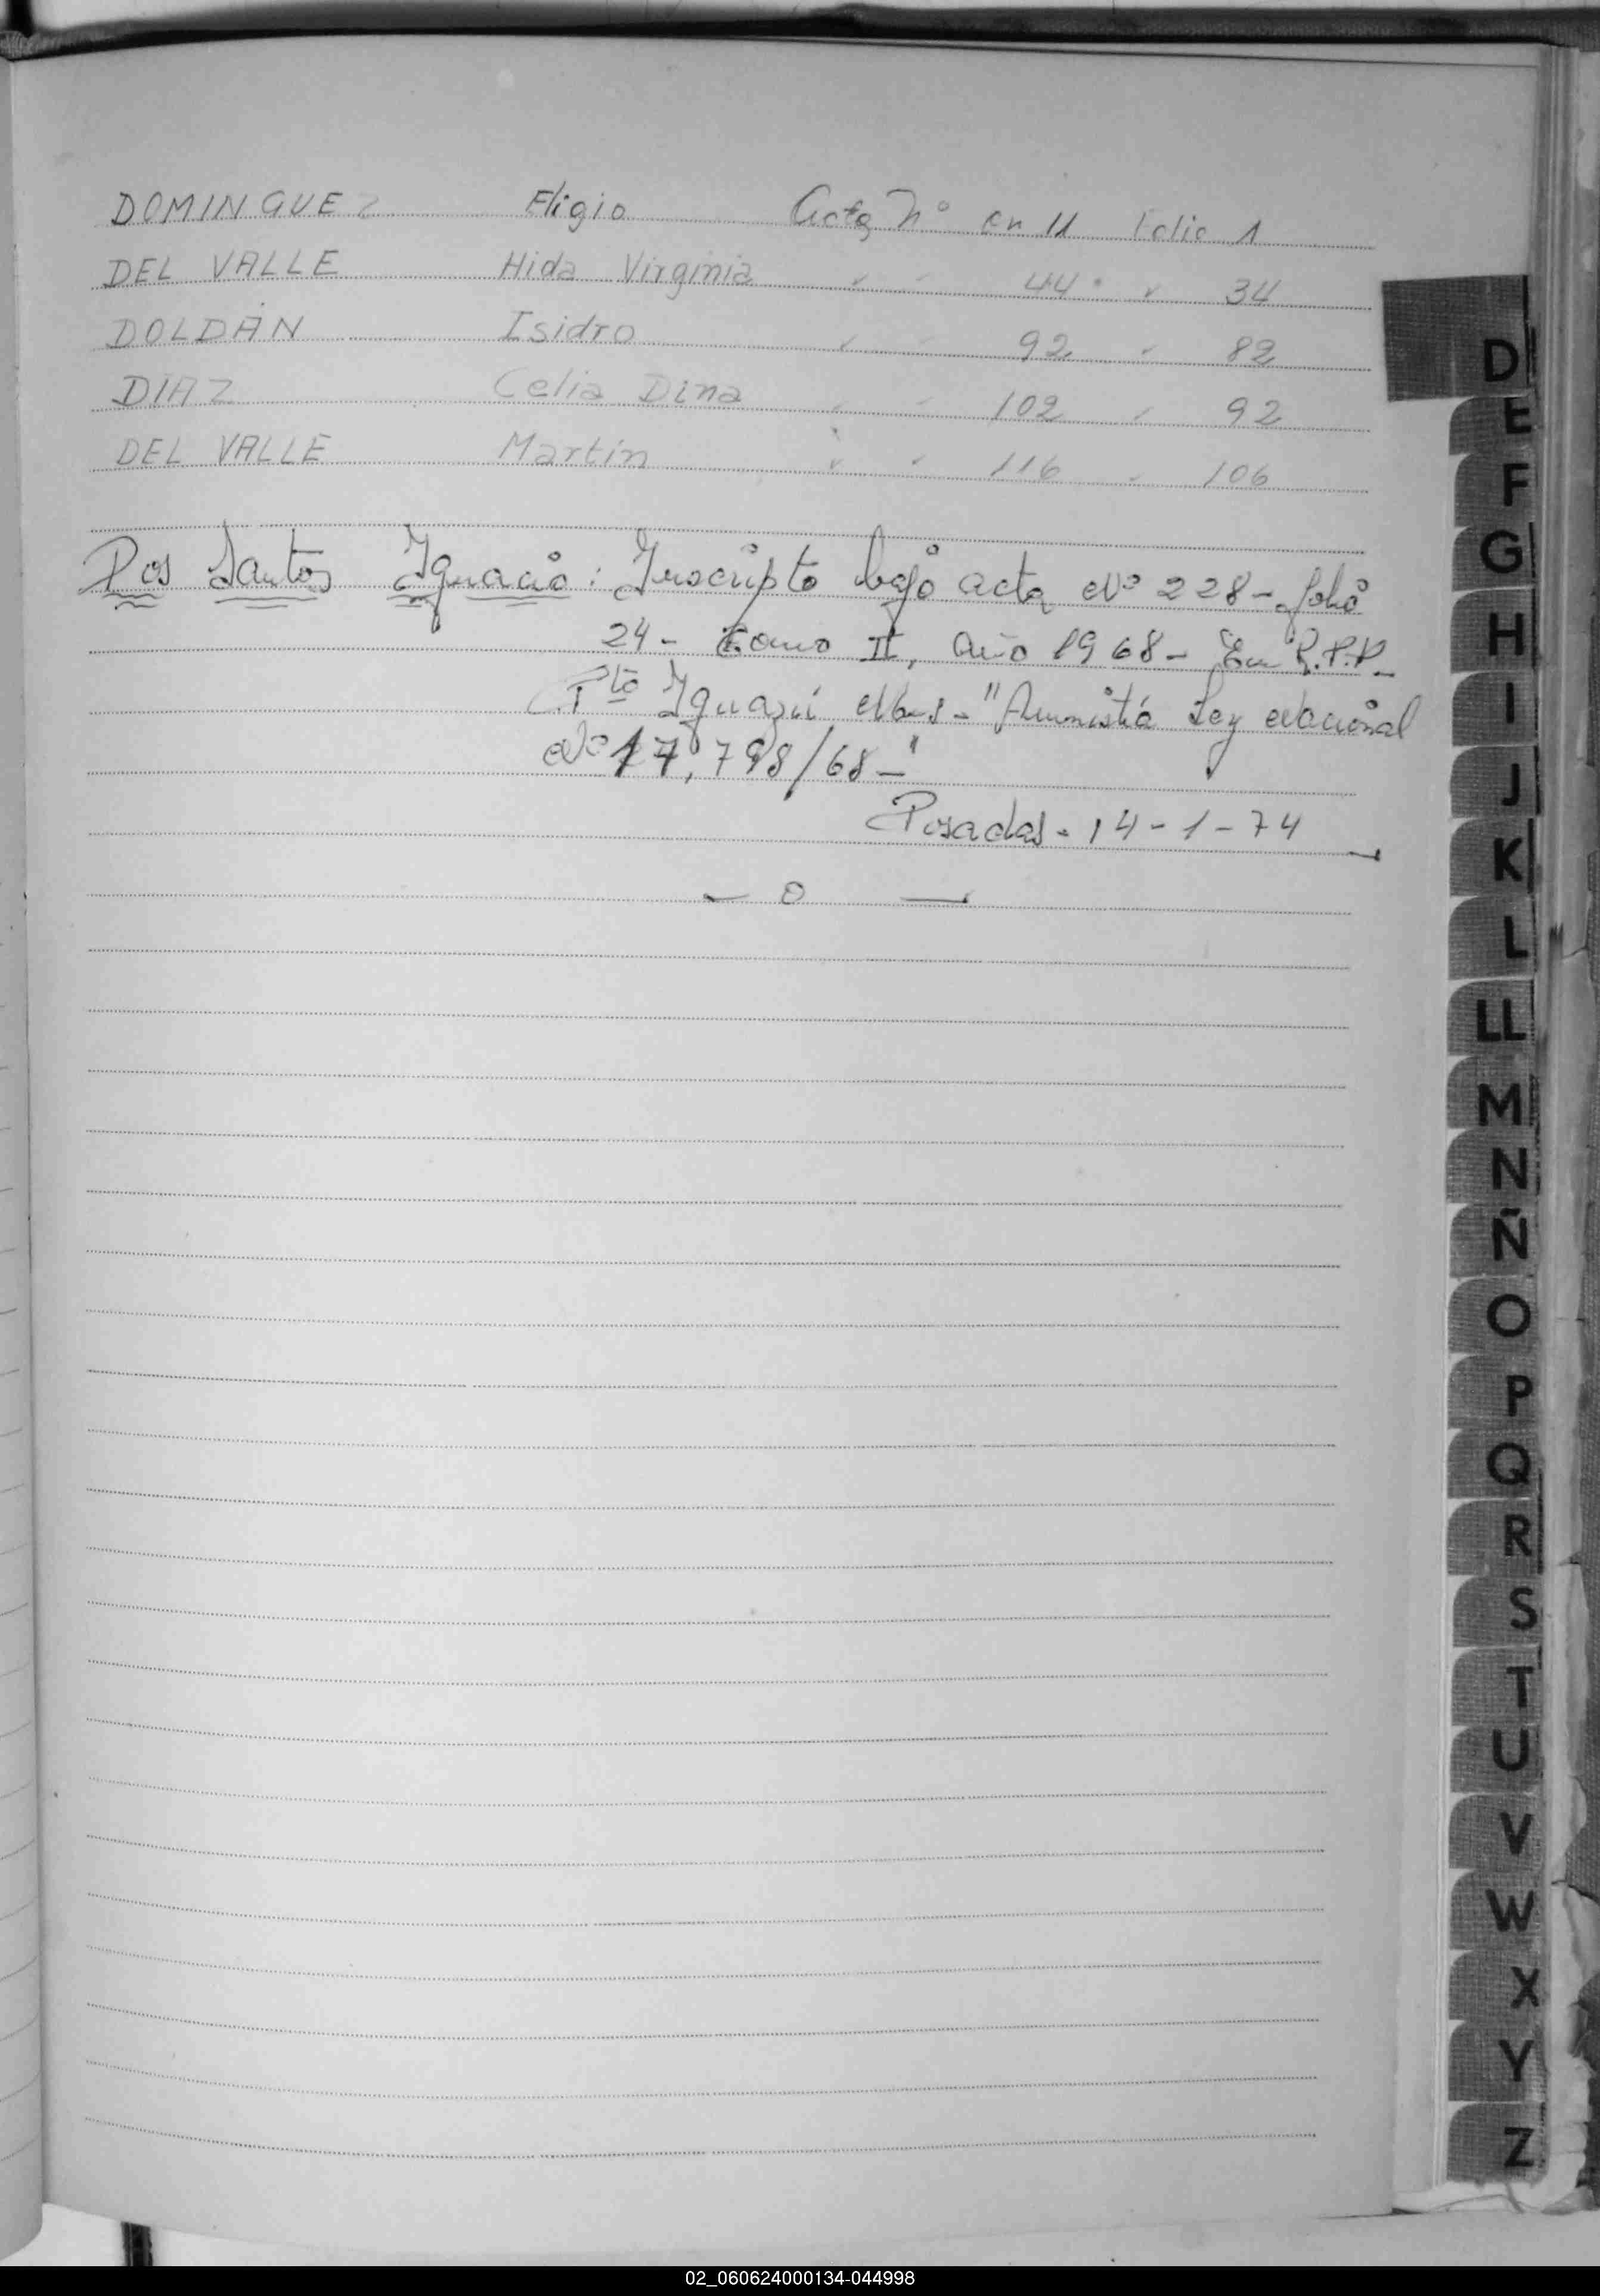 DOMINGUEZ Eligio Acta Nº en 11 Folio 1
DEL VALLE Hida Virginia " " 44 " 34
DOLDÁN Isidro " " 92 " 82
DIAZ Celia Dina " " 102 " 92
DEL VALLE Martín " " 116 " 106
Dos Santos Ignacio: Inscripto bajo acta Nº 228 - folio
24 - Tomo II, Año 1968 - En R.P.P. -
Pto Iguazú Mnes - "Amnistía Ley Nacional
Nº 17,798/68 - "
Posadas - 14 - 1 - 74
— o —
D
E
F
G
H
I
J
K
L
LL
M
N
Ñ
O
P
Q
R
S
T
U
V
W
X
Y
Z
02_060624000134-044998